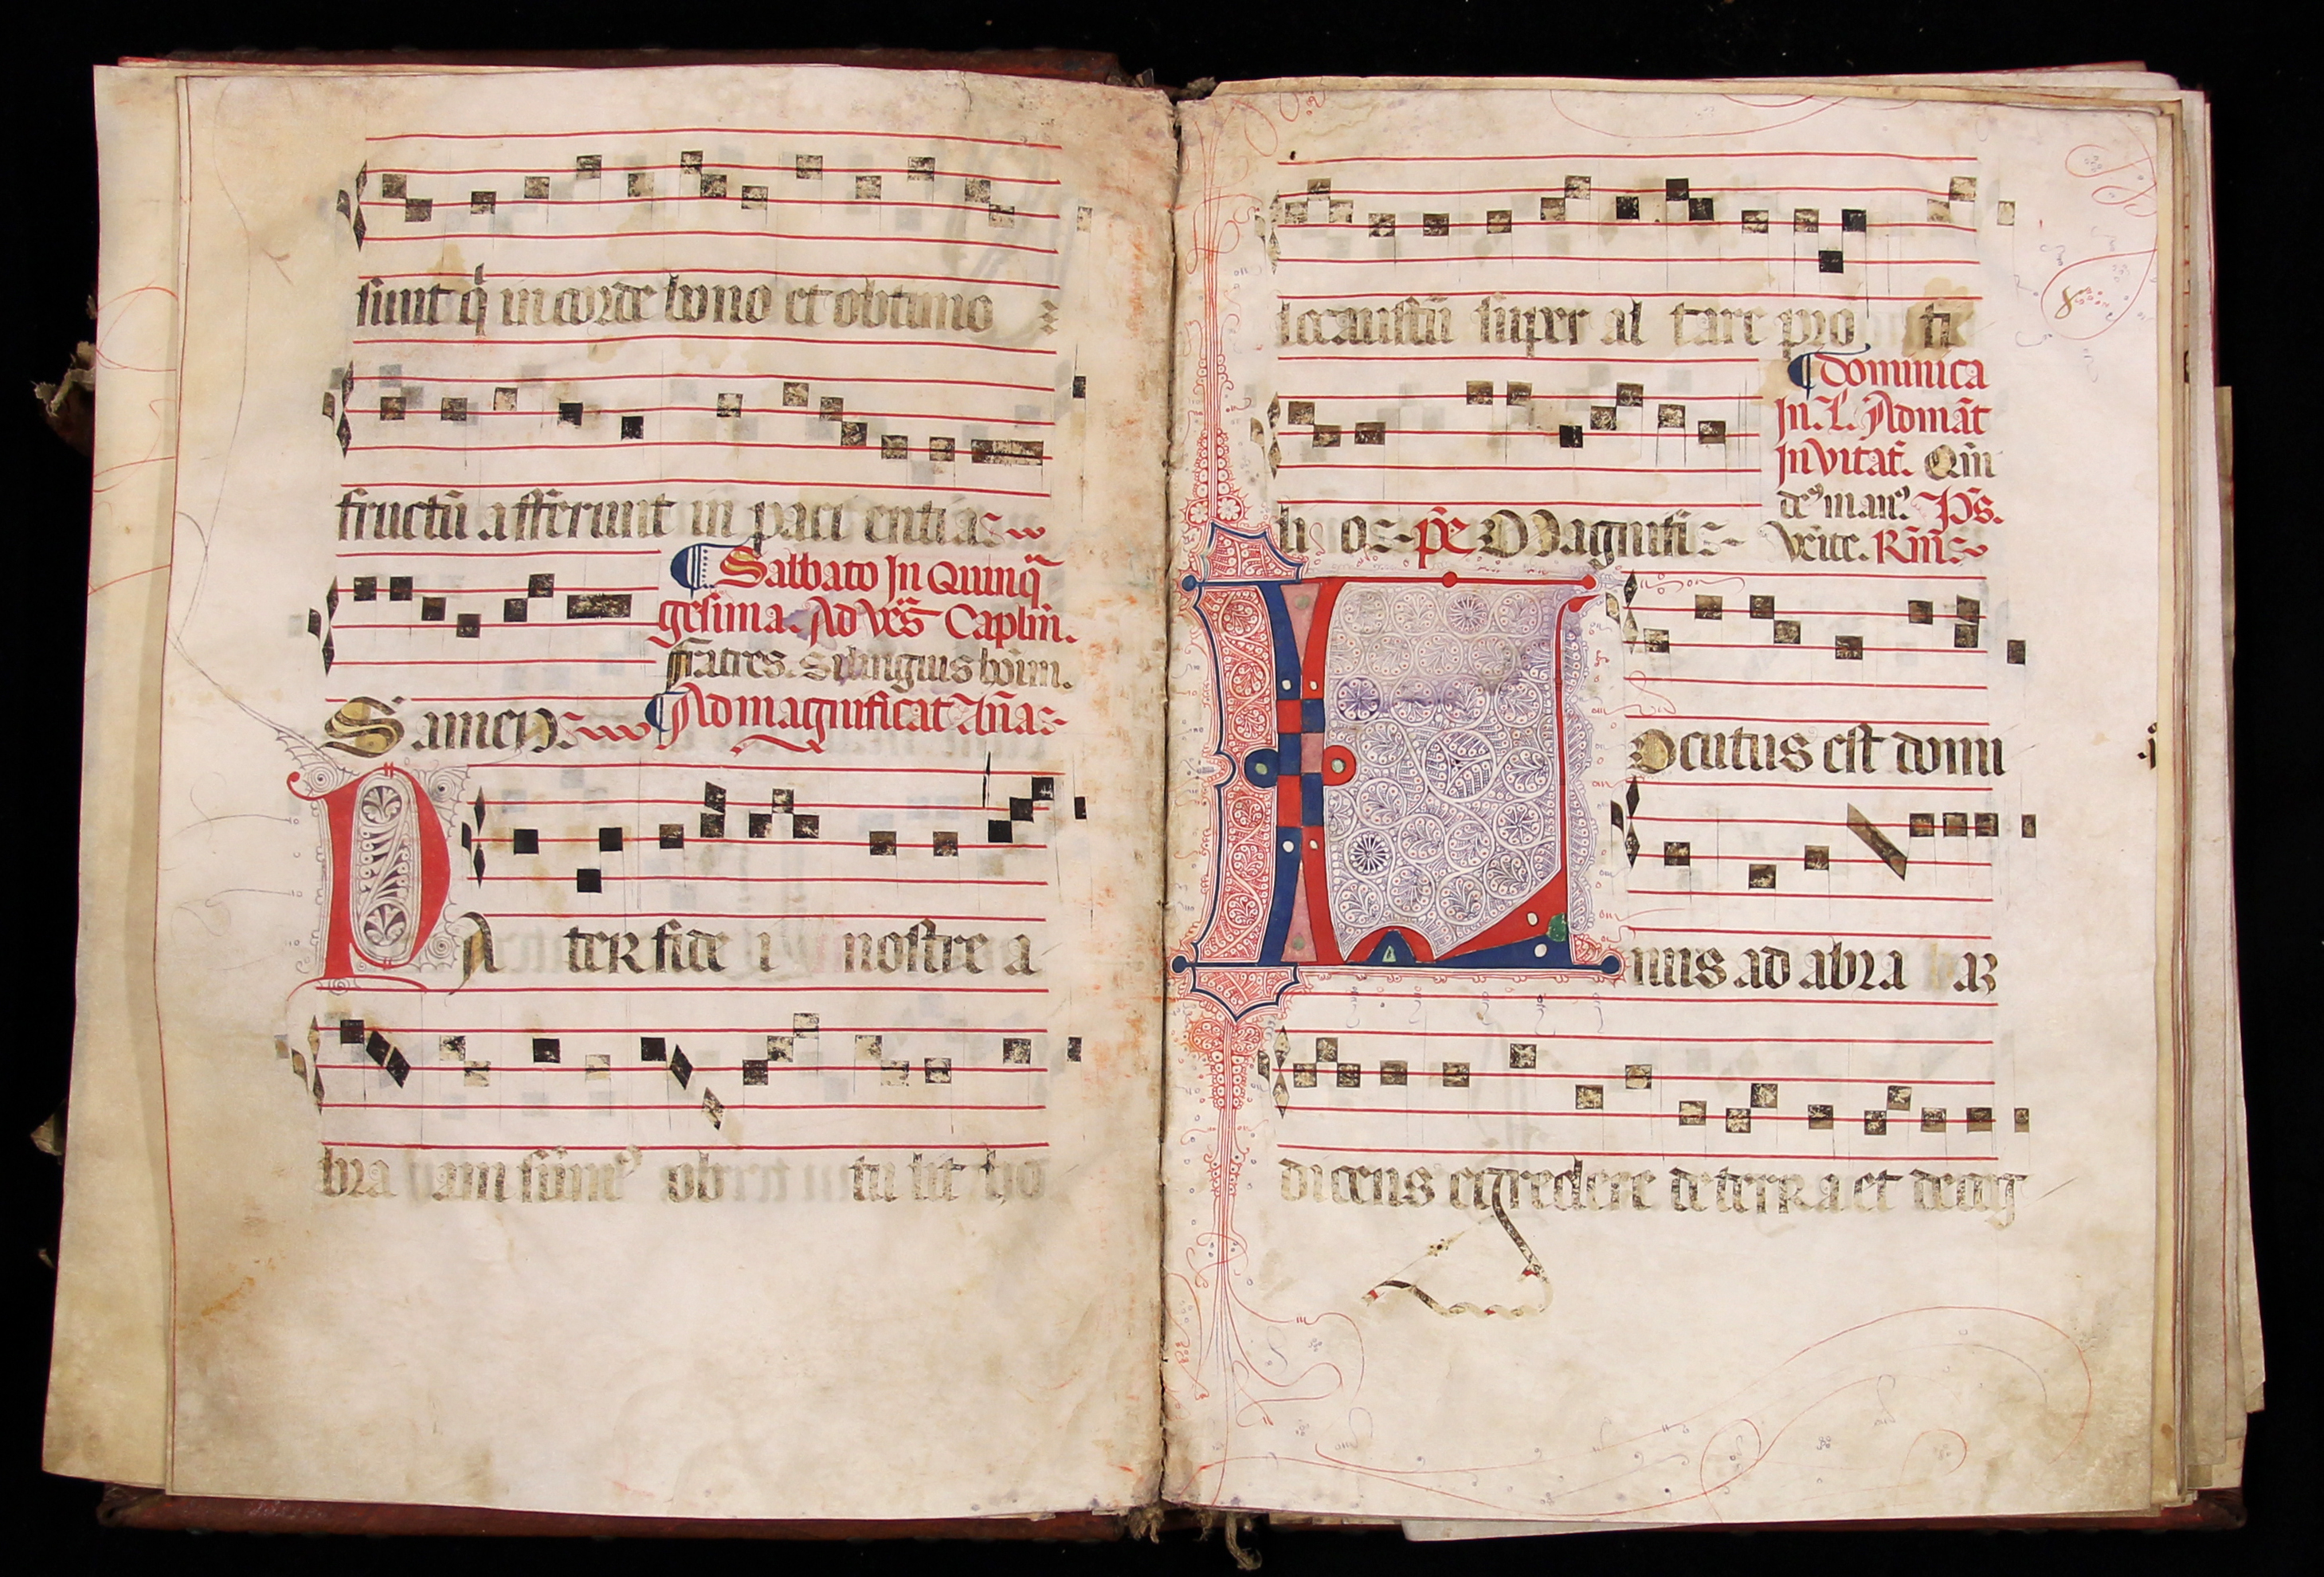 sunt q̃ in corde bono et obtimo
fructũ afferunt in paci entia
Sabbato In Quinq̃
gesima. Ad vẽs Caplm̃.
fratres. Si linguis hoĩm.
S amen p̃s
Ad magnificat Añas
P A ter fide i nostre a
bra am sum̃⁹ ob tu lit ho
locaustũ super al tare pro fi
Dominica
In .L. Ad mãt
Invitat̃. Qm̃
de⁹ man⁹. Ps.
li o p̃e Magnifi Venite. Rm̃
L Ocutus est domi
nus ad abra aʒ
dicens egredere de terra et de cog